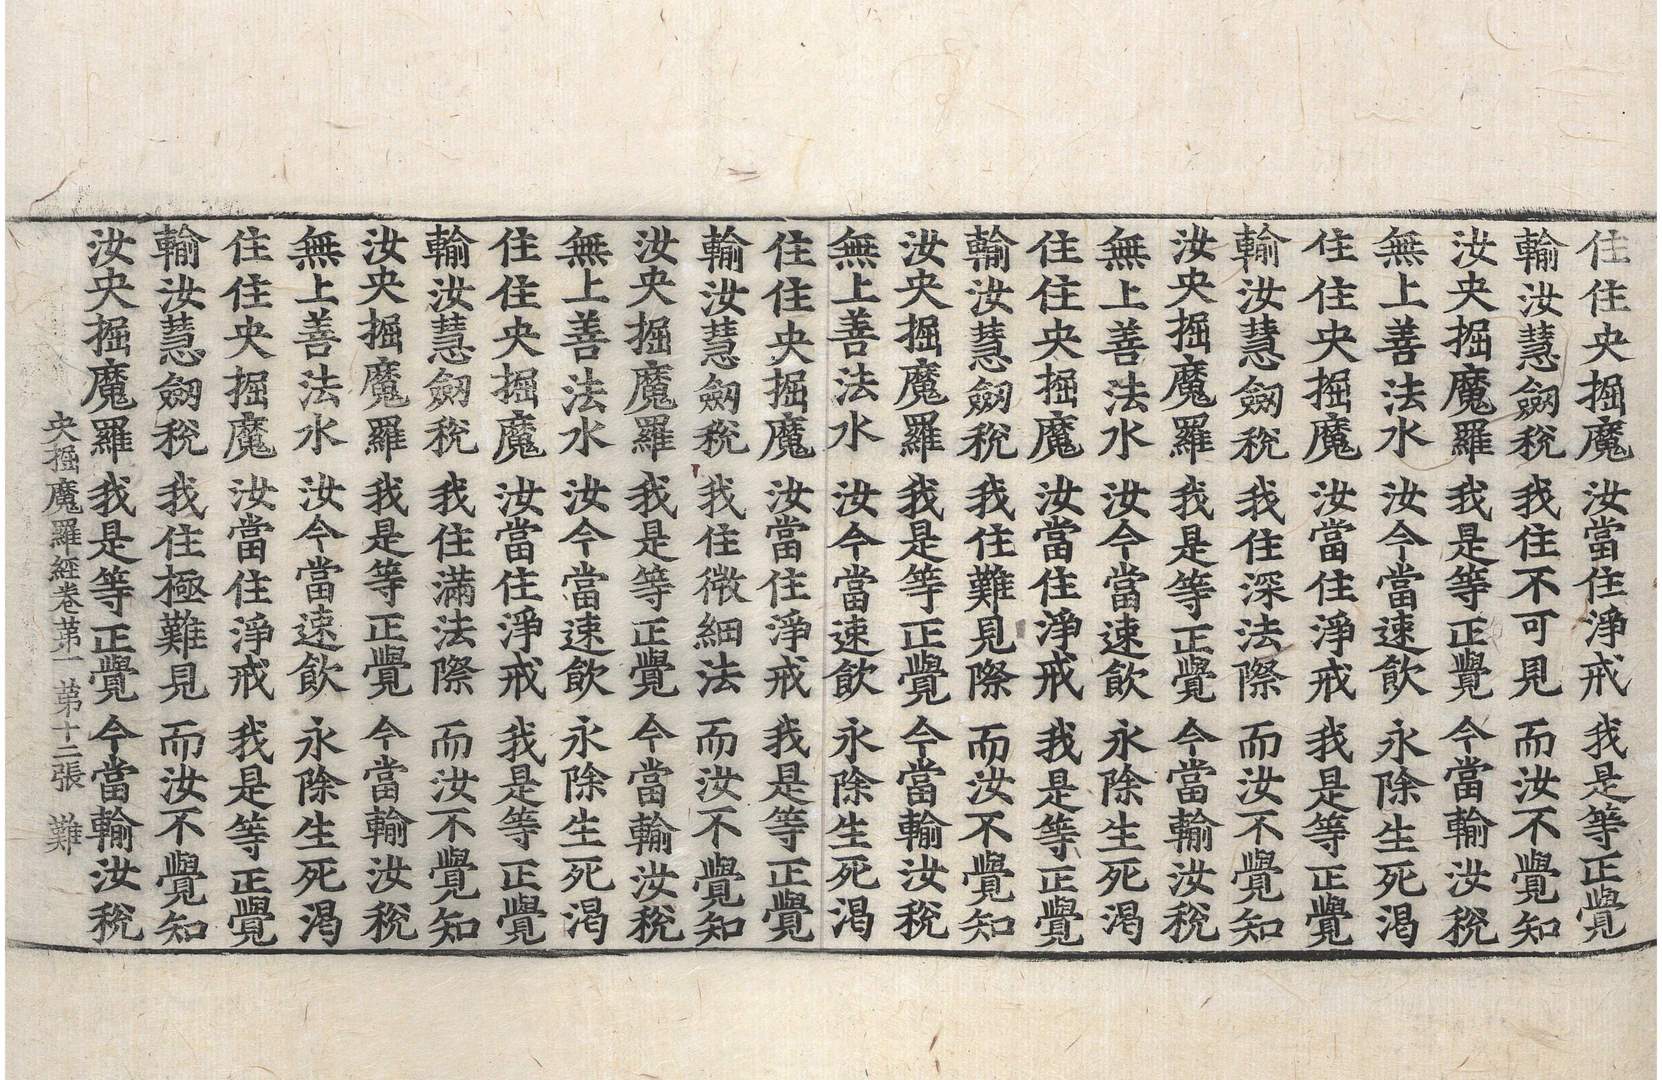 住住央掘魔 汝當住淨戒 我是等正覺
輸汝慧劒稅 我住不可見 而汝不覺知
汝央掘魔羅 我是等正覺 今當輸汝稅
無上善法水 汝今當速飲 永除生死渴
住住央掘魔 汝當住淨戒 我是等正覺
輸汝慧劒稅 我住深法際 而汝不覺知
汝央掘魔羅 我是等正覺 今當輸汝稅
無上善法水 汝今當速飲 永除生死渴
住住央掘魔 汝當住淨戒 我是等正覺
輸汝慧劒稅 我住難見際 而汝不覺知
汝央掘魔羅 我是等正覺 今當輸汝稅
無上善法水 汝今當速飲 永除生死渴
住住央掘魔 汝當住淨戒 我是等正覺
輸汝慧劒稅 我住微細法 而汝不覺知
汝央掘魔羅 我是等正覺 今當輸汝稅
無上善法水 汝今當速飲 永除生死渴
住住央掘魔 汝當住淨戒 我是等正覺
輸汝慧劒稅 我住滿法際 而汝不覺知
汝央掘魔羅 我是等正覺 今當輸汝稅
無上善法水 汝今當速飲 永除生死渴
住住央掘魔 汝當住淨戒 我是等正覺
輸汝慧劒稅 我住極難見 而汝不覺知
汝央掘魔羅 我是等正覺 今當輸汝稅
央掘魔羅經卷第一 第十二張 難